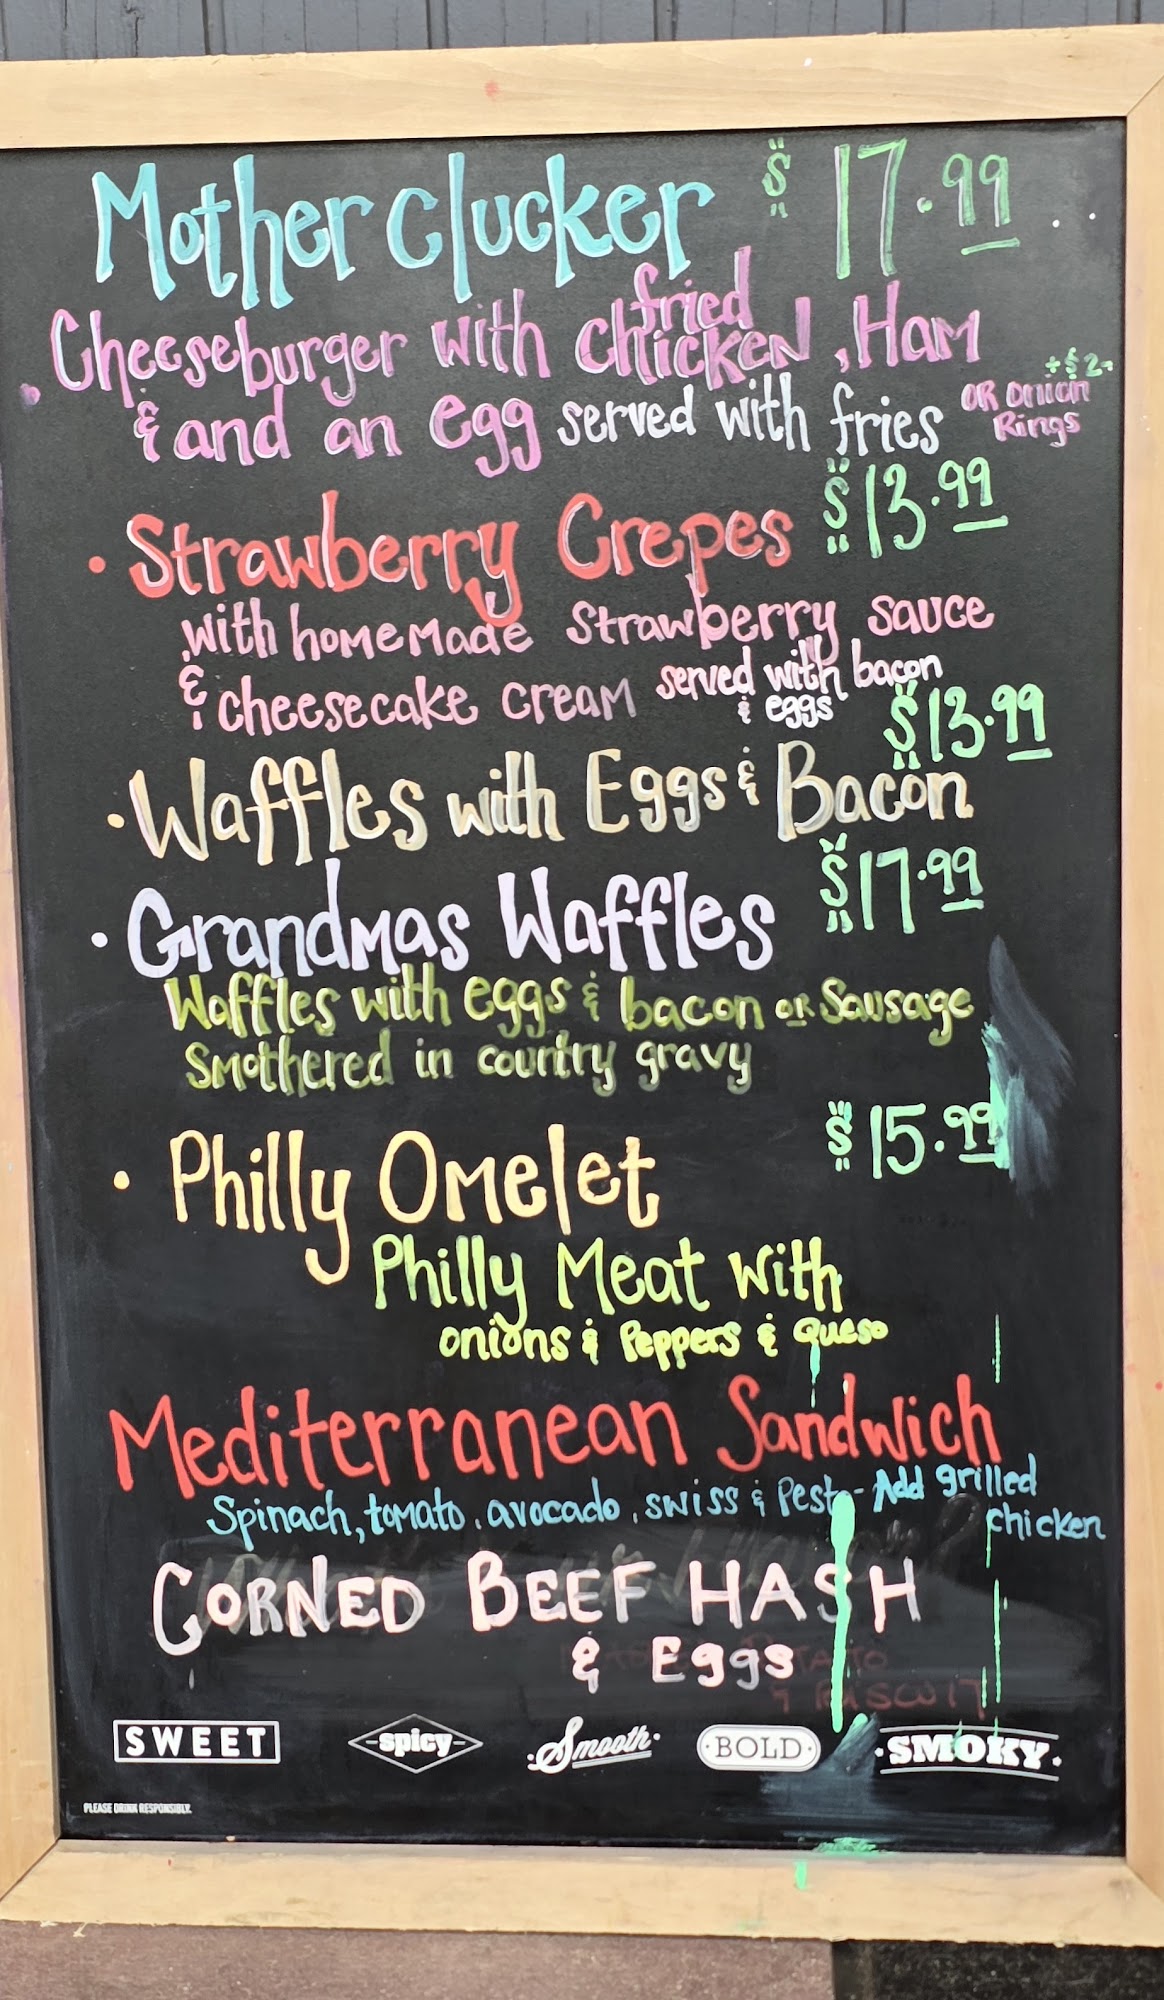 Mother clucker $ 17.99
Cheeseburger with fried chicken, Ham
& and an egg served with fries OR onion Rings +$2-
Strawberry Crepes $13.99
with homemade strawberry sauce
& cheesecake cream served with bacon & eggs
$13.99
Waffles with Eggs & Bacon
Grandmas Waffles $17.99
Waffles with eggs & bacon or Sausage
Smothered in country gravy
Philly Omelet $15.99
Philly Meat with
onions & Peppers & Queso
Mediterranean Sandwich
Spinach, tomato, avocado, swiss & Pesto - Add grilled
chicken
CORNED BEEF HASH
& Eggs
SWEET spicy Smooth BOLD SMOKY
PLEASE DRINK RESPONSIBLY.